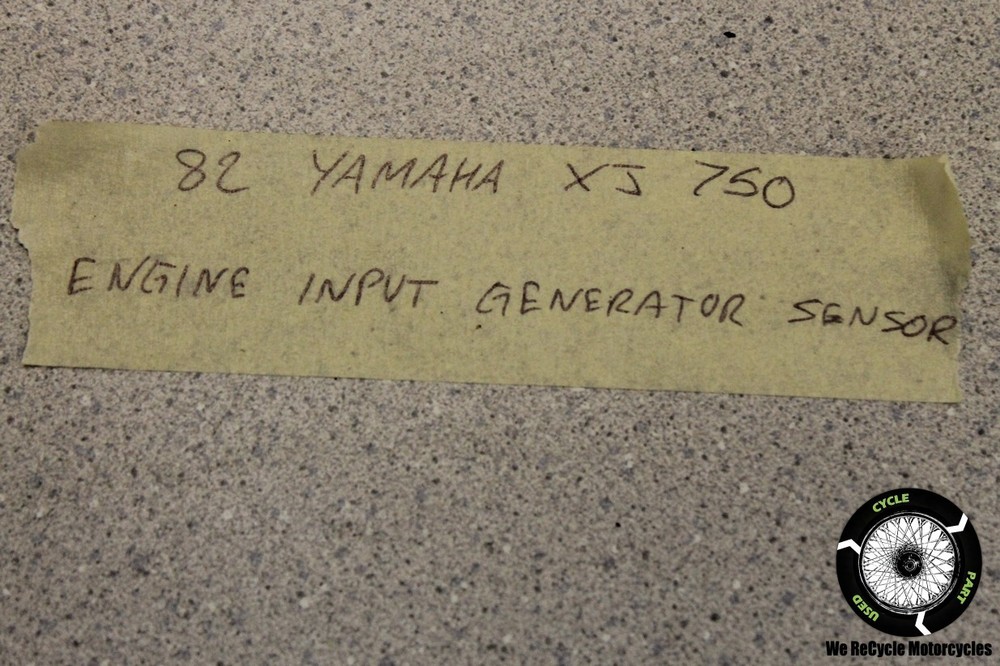 82 YAMAHA XJ 750
ENGINE INPUT GENERATOR SENSOR
CYCLE
PART
USED
We ReCycle Motorcycles